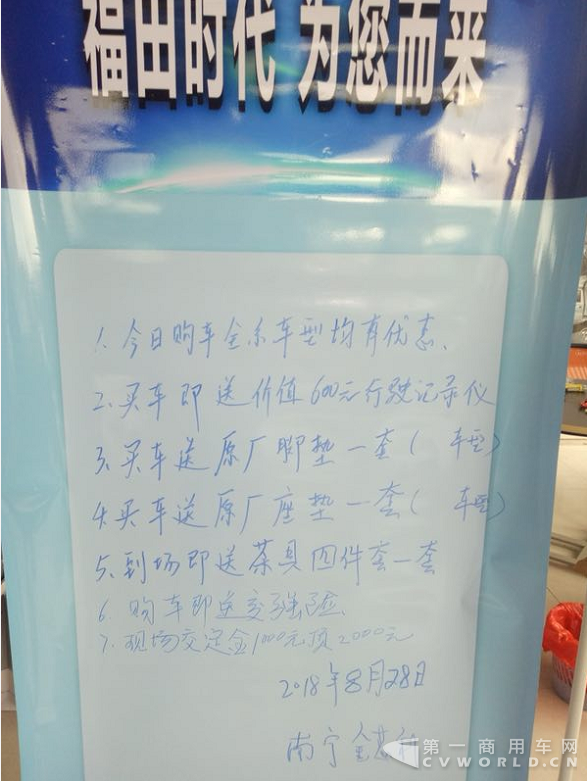 福田时代 为您而来
1.今日购车全系车型均有优惠.
2.买车即送价值600元行驶记录仪
3.买车送原厂脚垫一套(  车型)
4.买车送原厂座垫一套(  车型)
5.到场即送茶具四件套一套
6.购车即送交强险.
7.现场交定金1000元顶2000元
2018年8月28日
南宁金
第一商用车网
CVWORLD.CN